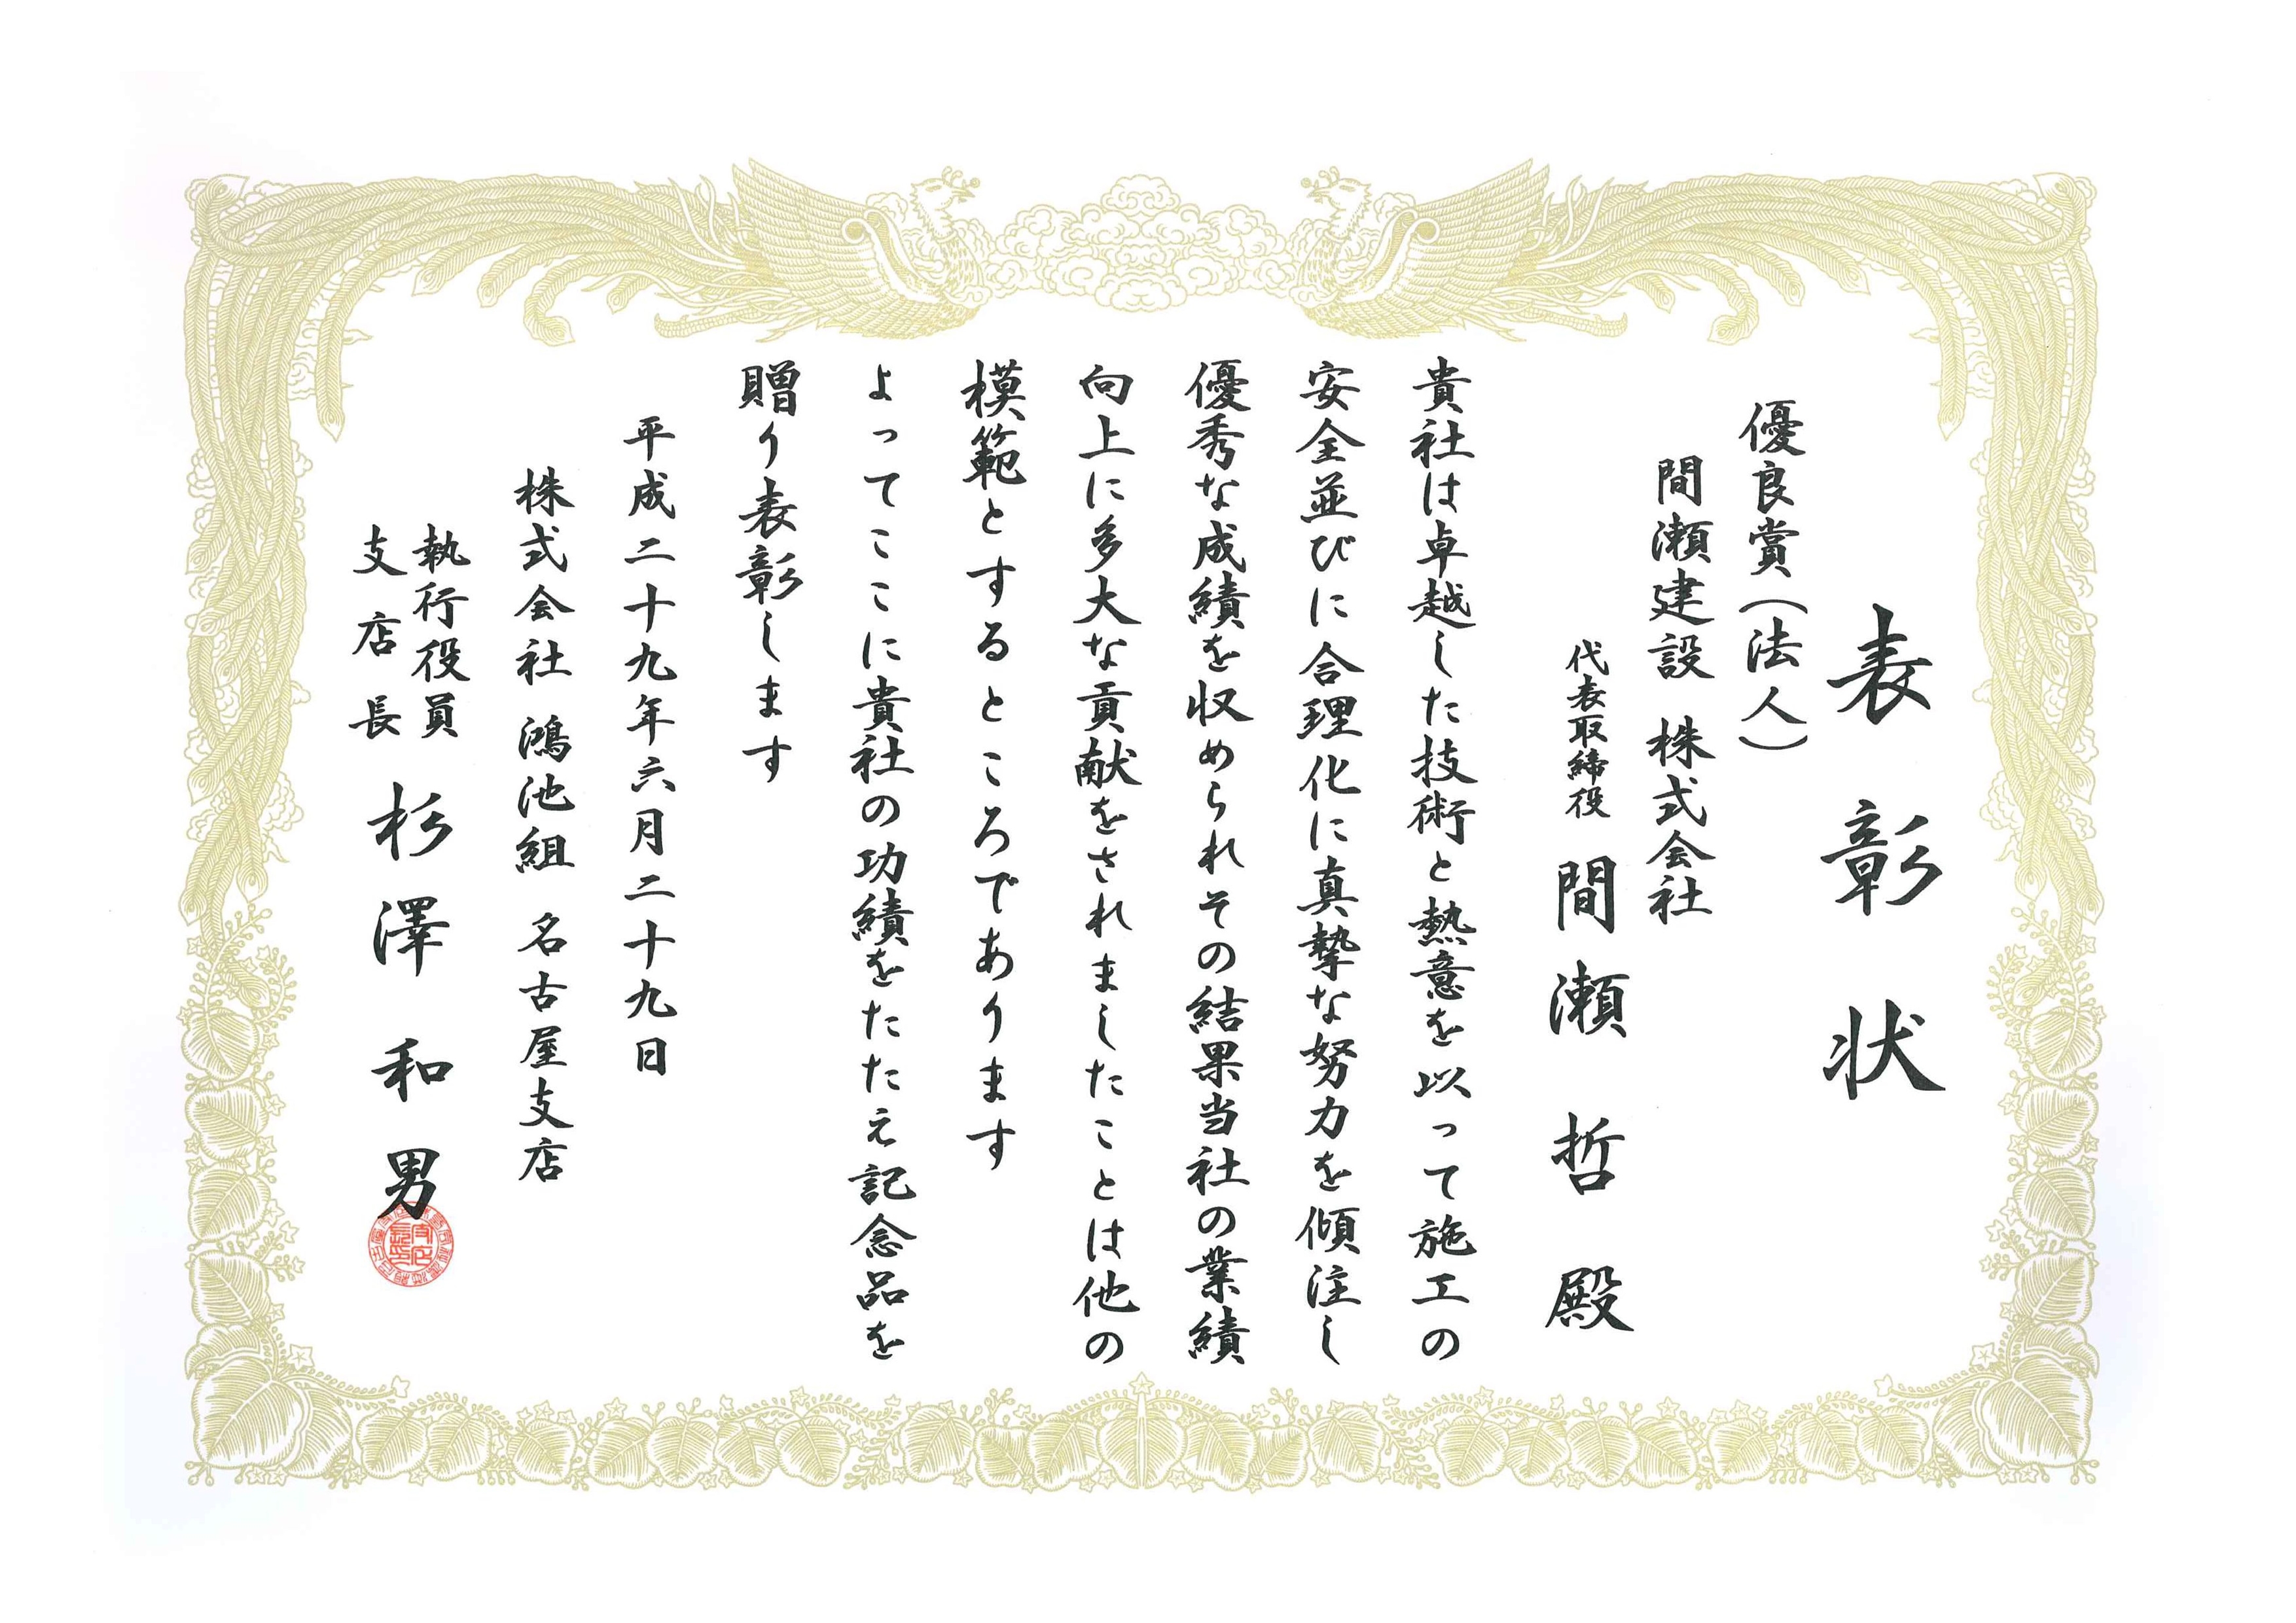 表彰状
優良賞(法人)
間瀬建設 株式会社
代表取締役 間瀬 哲 殿
貴社は卓越した技術と熱意を以って施工の
安全並びに合理化に真摯な努力を傾注し
優秀な成績を収められその結果当社の業績
向上に多大な貢献をされましたことは他の
模範とするところであります
よってここに貴社の功績をたたえ記念品を
贈り表彰します
平成二十九年六月二十九日
株式会社 鴻池組 名古屋支店
執行役員
支店長 杉澤和男